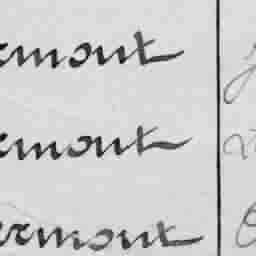 rmont
rmont
ermont